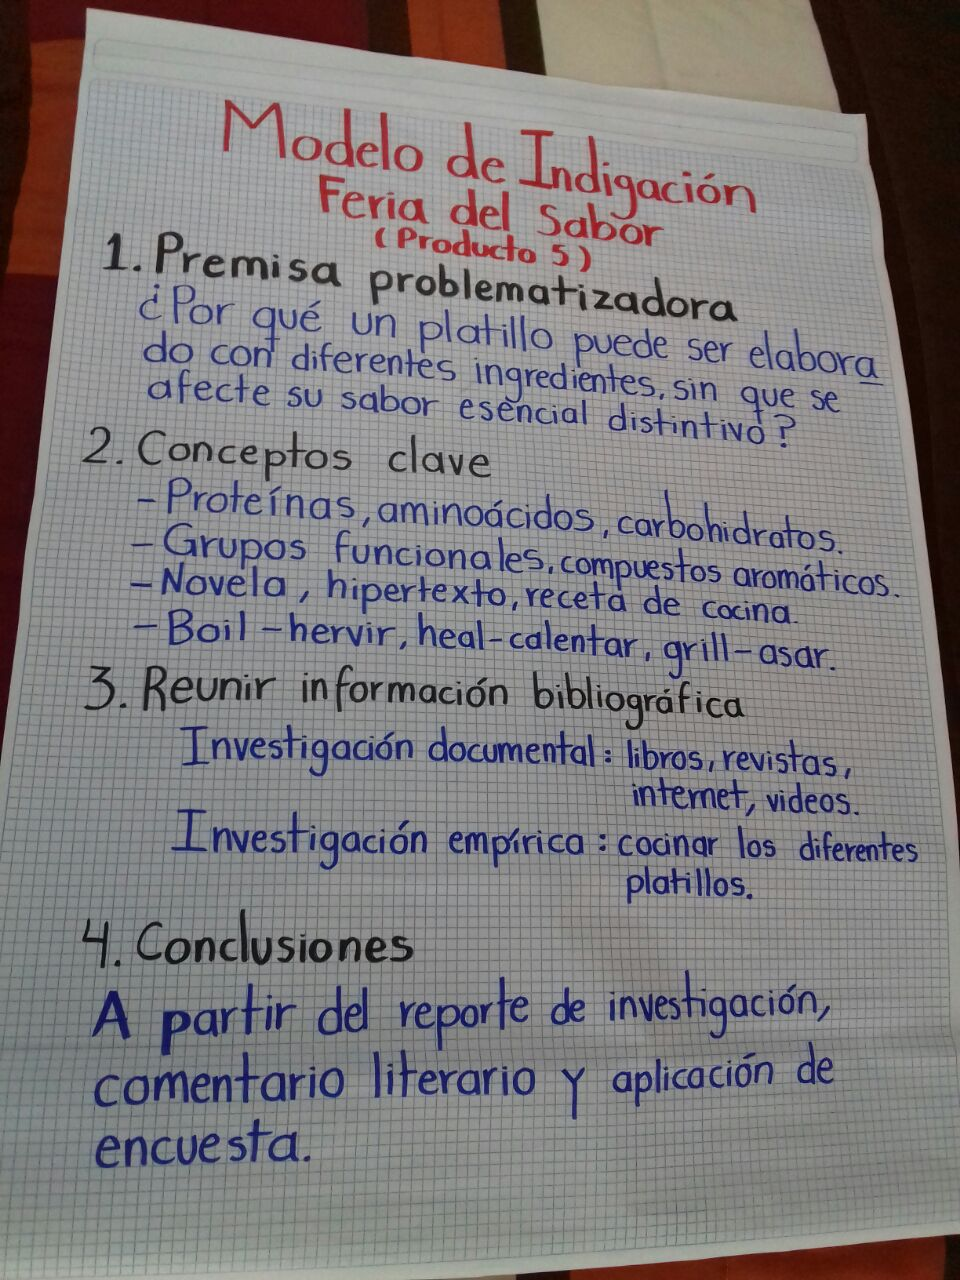 Modelo de Indigación
Feria del Sabor
(Producto 5)
1. Premisa problematizadora
¿Por qué un platillo puede ser elabora
do con diferentes ingredientes, sin que se
afecte su sabor esencial distintivo?
2. Conceptos clave
- Proteínas, aminoácidos, carbohidratos.
- Grupos funcionales, compuestos aromáticos.
- Novela, hipertexto, receta de cocina.
- Boil - hervir, heal - calentar, grill - asar.
3. Reunir información bibliográfica
Investigación documental: libros, revistas,
internet, videos.
Investigación empírica: cocinar los diferentes
platillos.
4. Conclusiones
A partir del reporte de investigación,
comentario literario y aplicación de
encuesta.